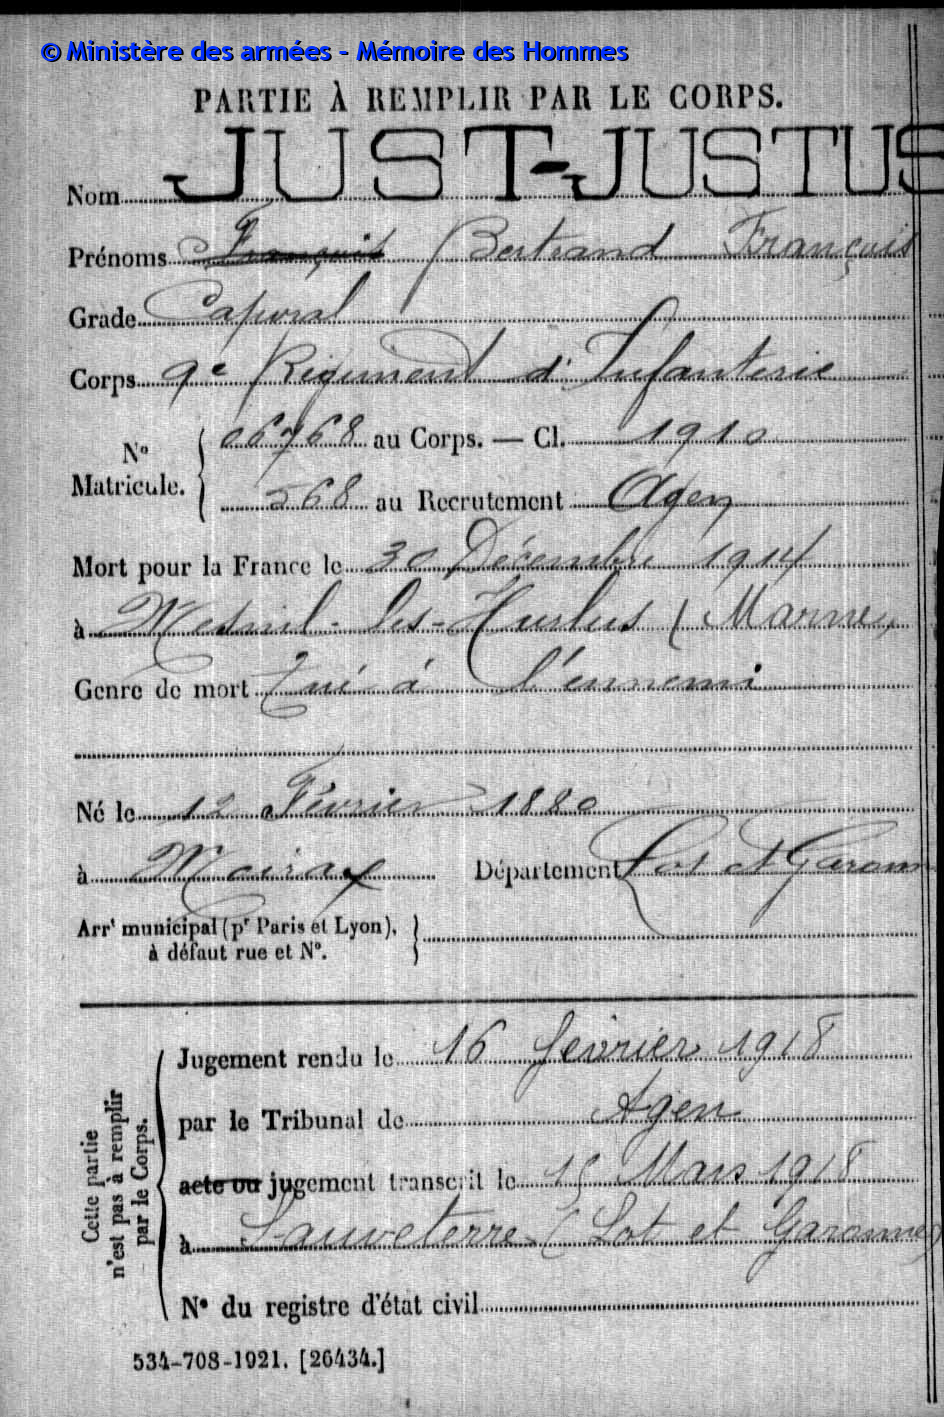 © Ministère des armées - Mémoire des Hommes
PARTIE À REMPLIR PAR LE CORPS.
Nom JUST-JUSTUS
Prénoms François Bertrand François
Grade Caporal
Corps 9e Régiment d'Infanterie
No Matricule. { 06768 au Corps. — Cl. 1910
568 au Recrutement Agen
Mort pour la France le 30 Décembre 1914
à Mesnil-les-Hurlus (Marne)
Genre de mort Tué à l'ennemi
Né le 12 Février 1880
à Moirax Département Lot et Garonne
Arrt municipal (pr Paris et Lyon),
à défaut rue et No.
Cette partie
n'est pas à remplir
par le Corps.
Jugement rendu le 16 février 1918
par le Tribunal de Agen
acte ou jugement transcrit le 15 Mars 1918
à Sauveterre (Lot et Garonne)
No du registre d'état civil
534-708-1921. [26434.]